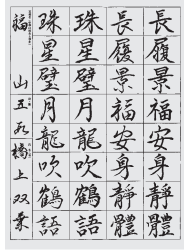 長履景福安身靜體
長履景福安身靜體
珠星璧月龍吹鶴語
珠星璧月龍吹鶴語
福
山
五
橋
上
双
葉